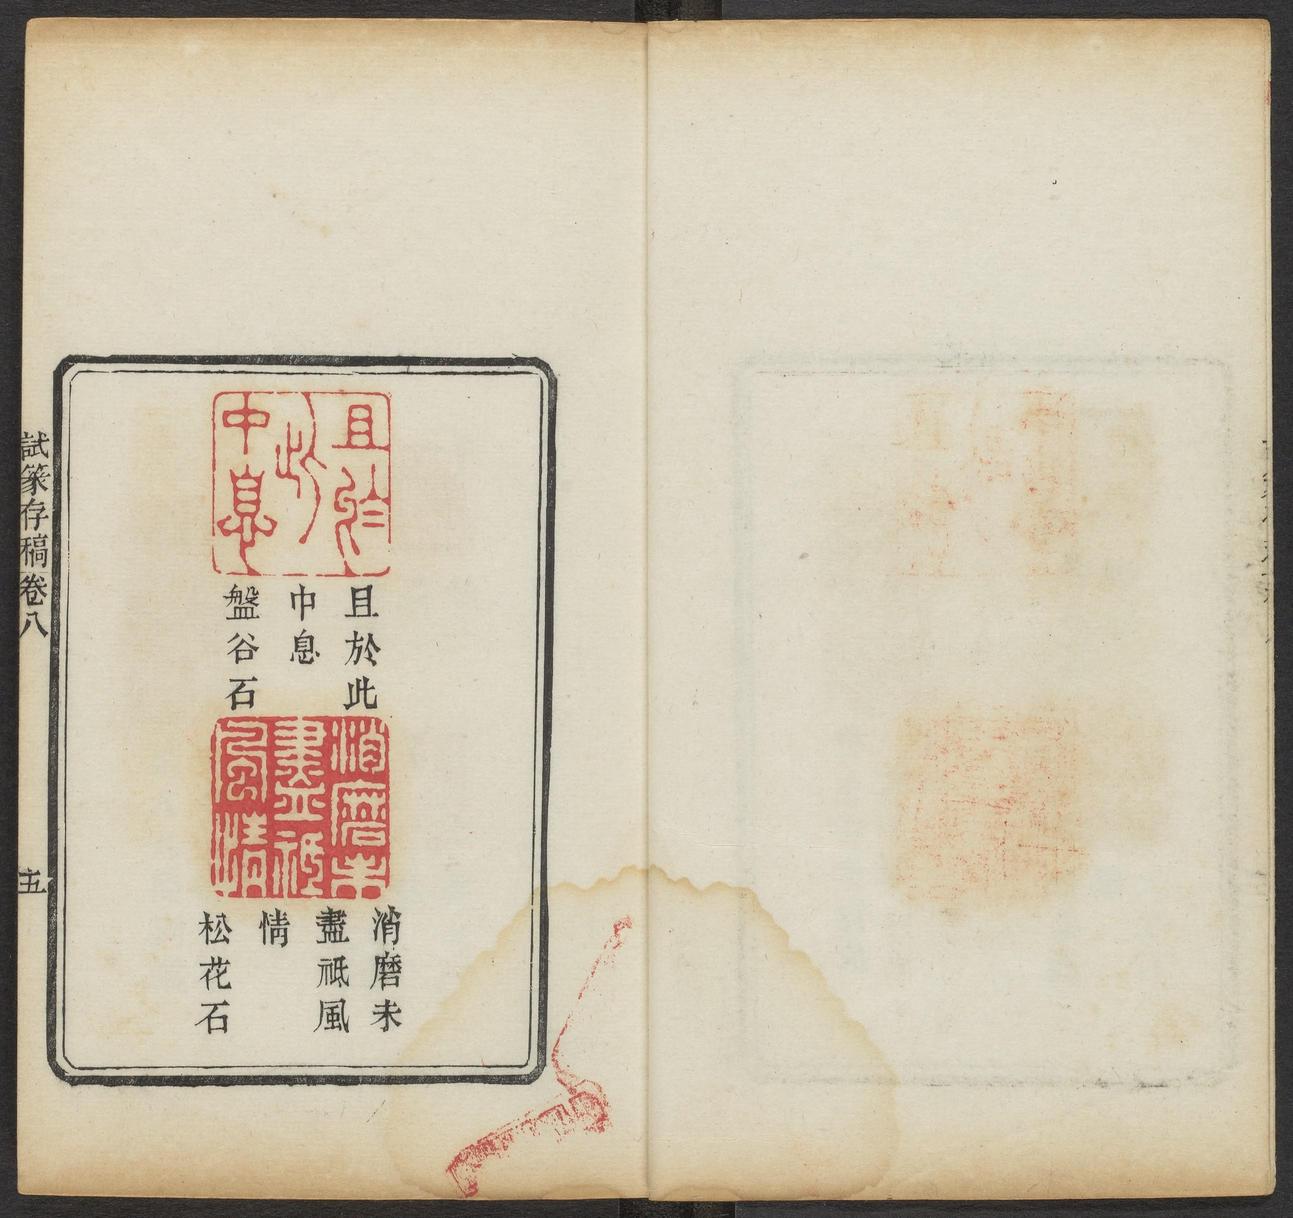 且於此中息
且於此
中息
盤谷石
消磨未盡祗風情
消磨未
盡祗風
情
松花石
試篆存稿卷八
五